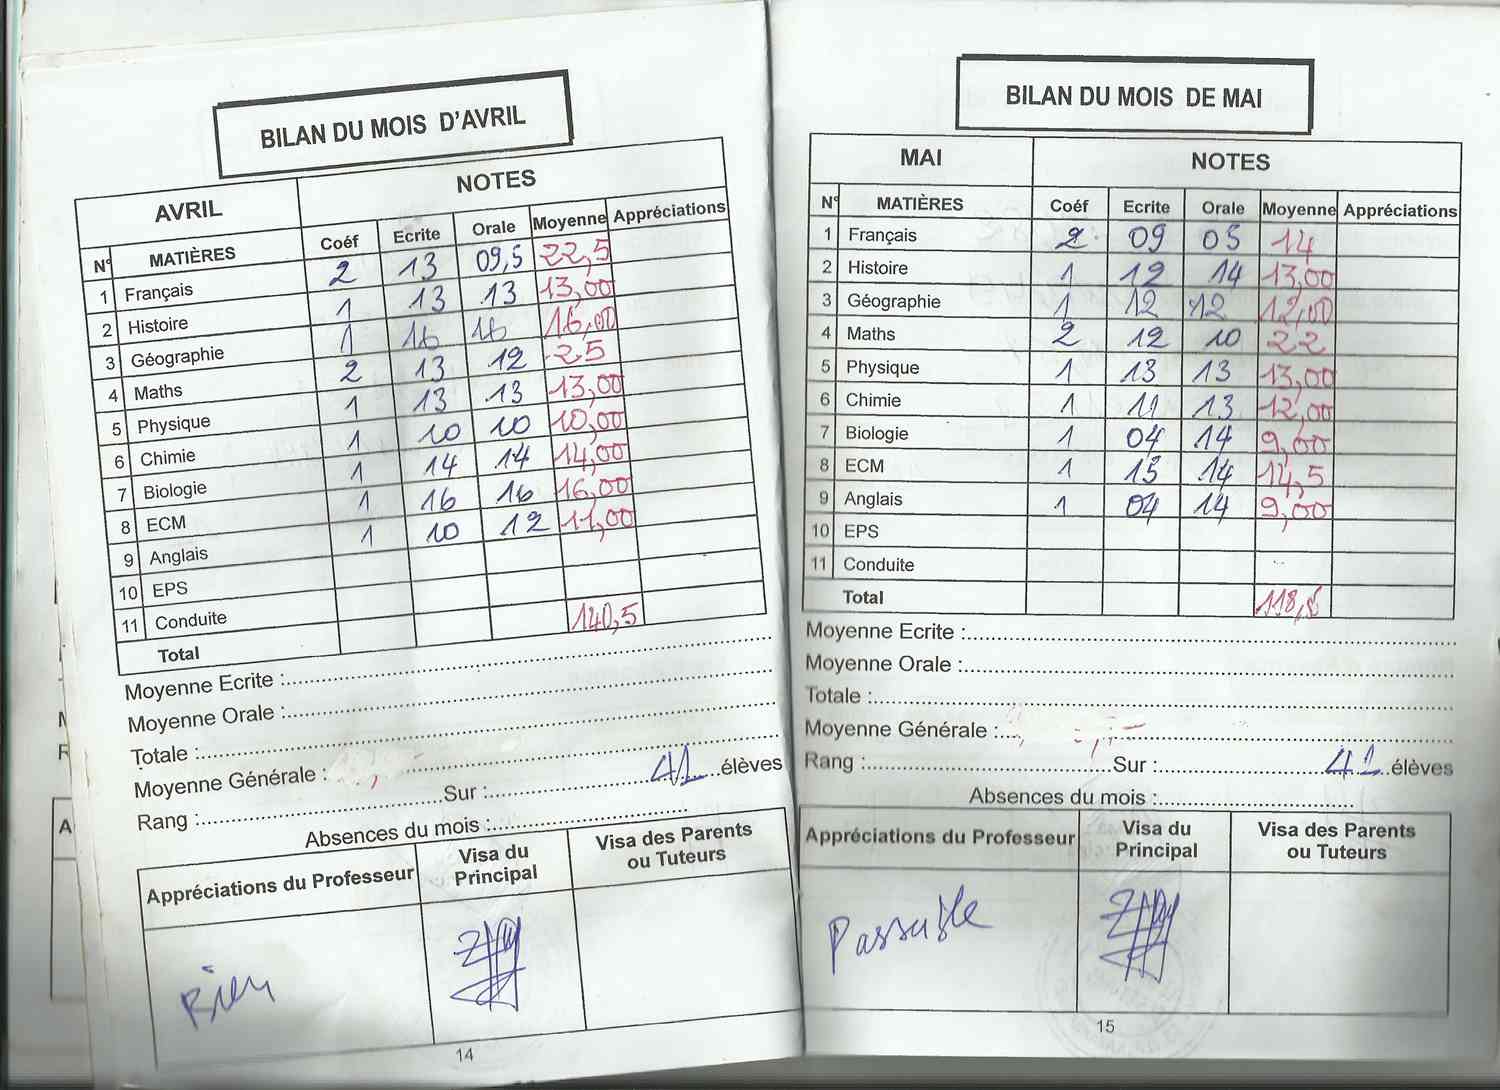 BILAN DU MOIS D'AVRIL
AVRIL NOTES
N° MATIÈRES Coéf Ecrite Orale Moyenne Appréciations
1 Français 2 13 09,5 22,5
2 Histoire 1 13 13 13,00
3 Géographie 1 16 16 16,00
4 Maths 2 13 12 25
5 Physique 1 13 13 13,00
6 Chimie 1 10 10 10,00
7 Biologie 1 14 14 14,00
8 ECM 1 16 16 16,00
9 Anglais 1 10 12 11,00
10 EPS
11 Conduite
Total 140,5
Moyenne Ecrite :
Moyenne Orale :
Totale :
Moyenne Générale :
Rang : Sur : 41 élèves
Absences du mois :
Appréciations du Professeur Visa du Principal Visa des Parents ou Tuteurs
Bien
14
BILAN DU MOIS DE MAI
MAI NOTES
N° MATIÈRES Coéf Ecrite Orale Moyenne Appréciations
1 Français 2 09 05 14
2 Histoire 1 12 14 13,00
3 Géographie 1 12 12 12,00
4 Maths 2 12 10 22
5 Physique 1 13 13 13,00
6 Chimie 1 11 13 12,00
7 Biologie 1 04 14 9,00
8 ECM 1 15 14 14,5
9 Anglais 1 04 14 9,00
10 EPS
11 Conduite
Total 118,5
Moyenne Ecrite :
Moyenne Orale :
Totale :
Moyenne Générale :
Rang : Sur : 41 élèves
Absences du mois :
Appréciations du Professeur Visa du Principal Visa des Parents ou Tuteurs
Passable
15